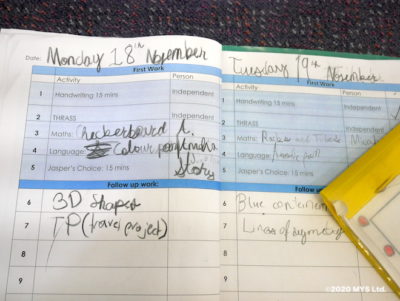 Date: Monday 18th November
First Work
Activity Person
1 Handwriting 15 mins Independent
2 THRASS Independent
3 Maths: Checkerboard
4 Language: Colour
5 Jasper's Choice: 15 mins Story
Follow up work:
6 3D Shapes
7 TP (travel project)
8
9
Tuesday 19th November
First Work
Activity Person
1 Handwriting 15 mins Independent
2 THRASS Independent
3 Maths:
4 Language:
5 Jasper's Choice: 15 mins
Follow up work:
6 Blue
7 Lines of symmetry
8
9
©2020 MYS Ltd.